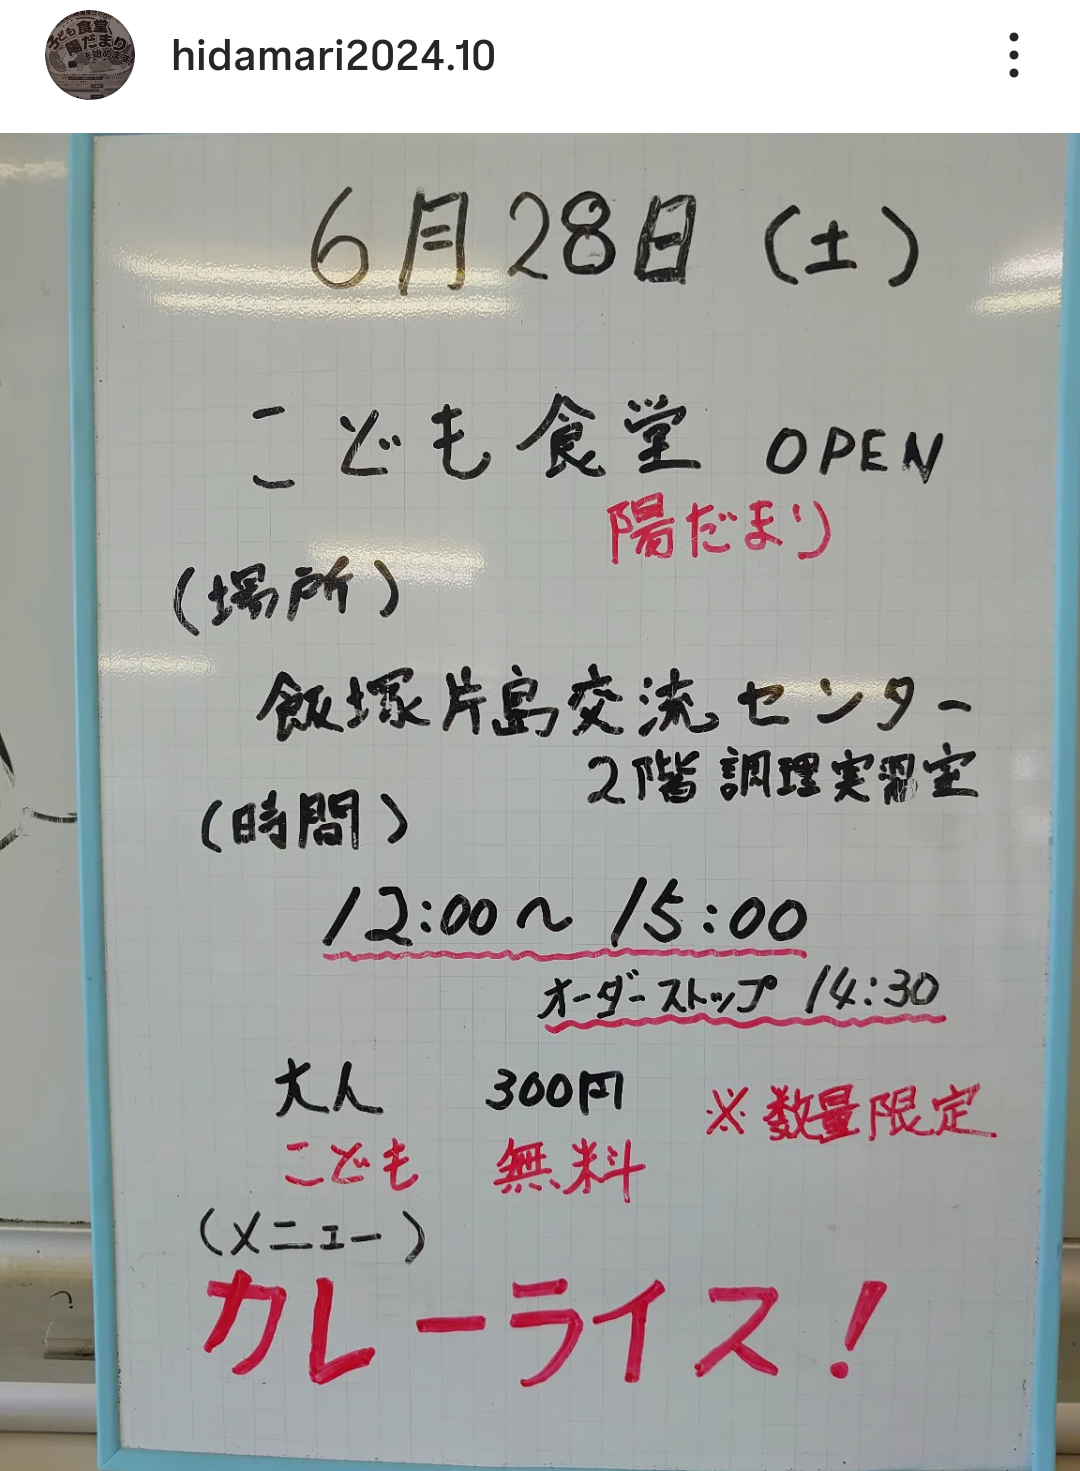 子ども食堂
陽だまり
を始めます!
hidamari2024.10
6月28日(土)
こども食堂 OPEN
陽だまり
(場所)
飯塚片島交流センター
2階調理実習室
(時間)
12:00~15:00
オーダーストップ 14:30
大人 300円 ※数量限定
こども 無料
(メニュー)
カレーライス!